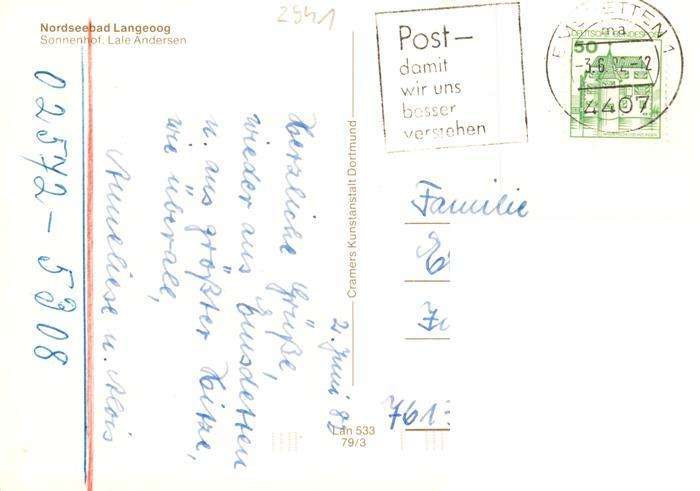 Nordseebad Langeoog
Sonnenhof, Lale Andersen
2941
Post—
damit
wir uns
besser
verstehen
EMSDETTEN 1
ma
-3.6.82-12
4407
50
DEUTSCHE BUNDESPOST
02572 - 5908
2. Juni 82
Herzliche Grüße,
wieder aus Emsdetten
u. aus größter Hitze,
wie überall,
Anneliese u. Alois
Cramers Kunstanstalt Dortmund
Familie
761
Lan 533
79/3